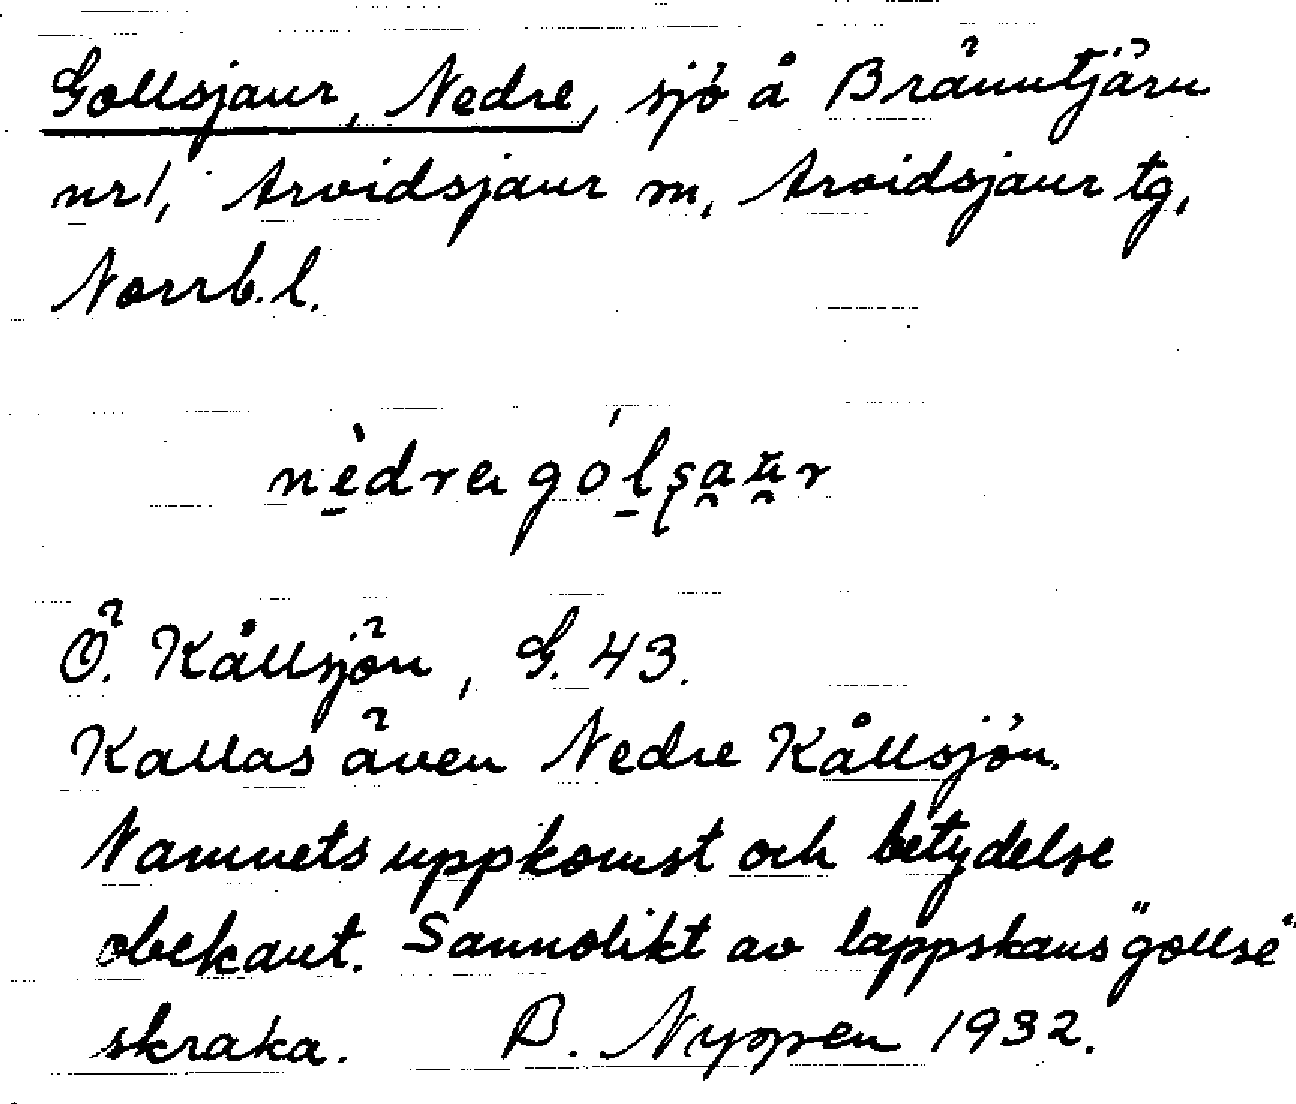 Gollsjaur, Nedre, sjö å Bränntjärn
nr1, Arvidsjaur m, Arvidsjaur tg,
Norrb.l.
Ö. Kållsjön, G. 43.
Kallas även Nedre Kållsjön.
Namnets uppkomst och betydelse
obekant. Sannolikt av lappskans "gollse"
skraka. B. Nyppen 1932.